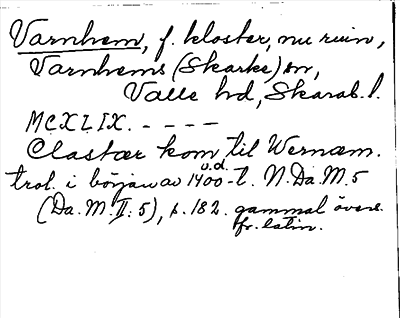 Varnhem, f. kloster, nu ruin,
Varnhems (Skarke) sn,
Valle hd, Skarab. l.
MCXLIX. - - - -
Clastær kom til Wernæm.
trol. i början av 1400-t. N. Da. M. 5
v.d.
(Da. M. II: 5), s. 182. gammal övers.
fr. latin.